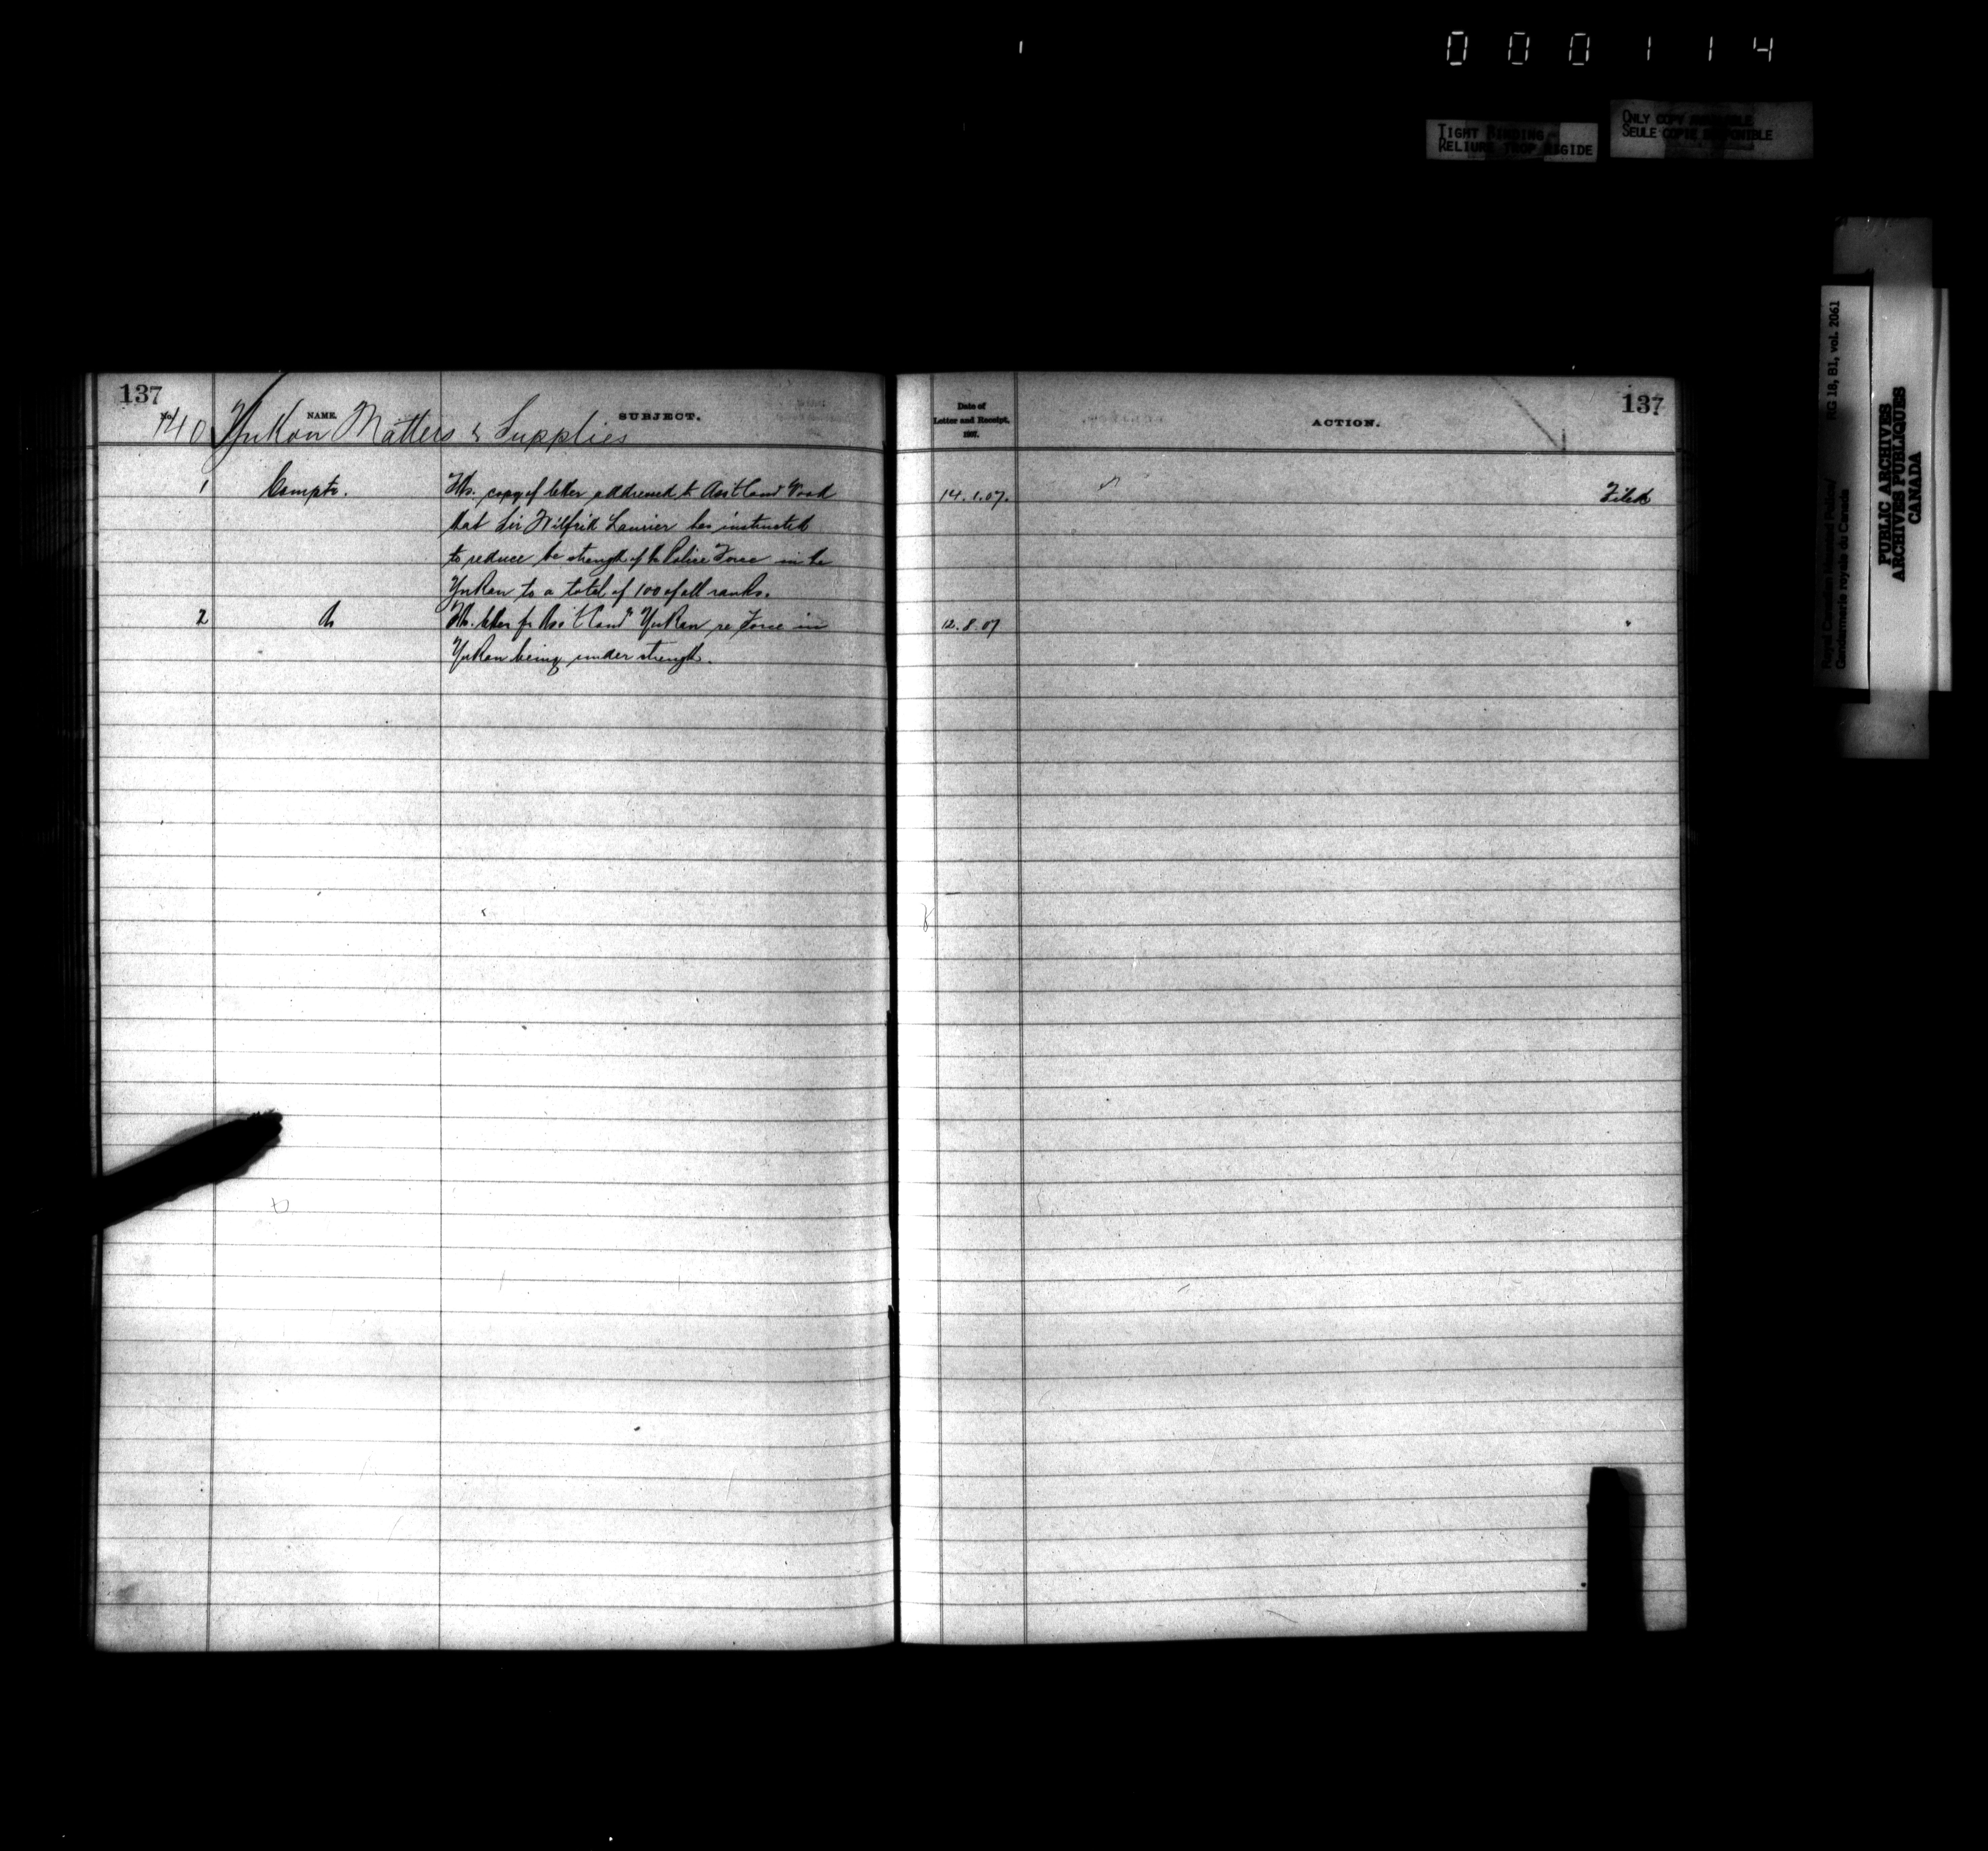 000114
TIGHT BINDING
RELIURE TROP RIGIDE
ONLY COPY AVAILABLE
SEULE COPIE DISPONIBLE
Royal Canadian Mounted Police/
Gendarmerie royale du Canada
RG 18, B1, vol. 2061
PUBLIC ARCHIVES
ARCHIVES PUBLIQUES
CANADA
137
No. NAME. SUBJECT.
140 Yukon Matters & Supplies
1 Comptr. copy of letter addressed to Asst Comr Wood
that Sir Wilfrid Laurier has instructed
to reduce the strength of the Police Force in the
Yukon to a total of 100 of all ranks.
2 letter fr Asst Comr Yukon re Force in
Yukon being under strength.
137
Date of
Letter and Receipt,
1907.
ACTION.
14.1.07. Filed
12.8.07 "